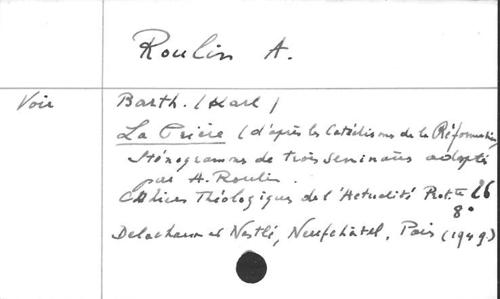 Roulin A.
Voir Barth. (Karl)
La Prière (d'après les Catéchismes de la Réformation
Sténogrammes de trois séminaires adapté
par A. Roulin.
Cahiers Théologiques de l'Actualité Prot. 26
8°
Delachaux et Nestlé, Neufchâtel, Paris (1949.)